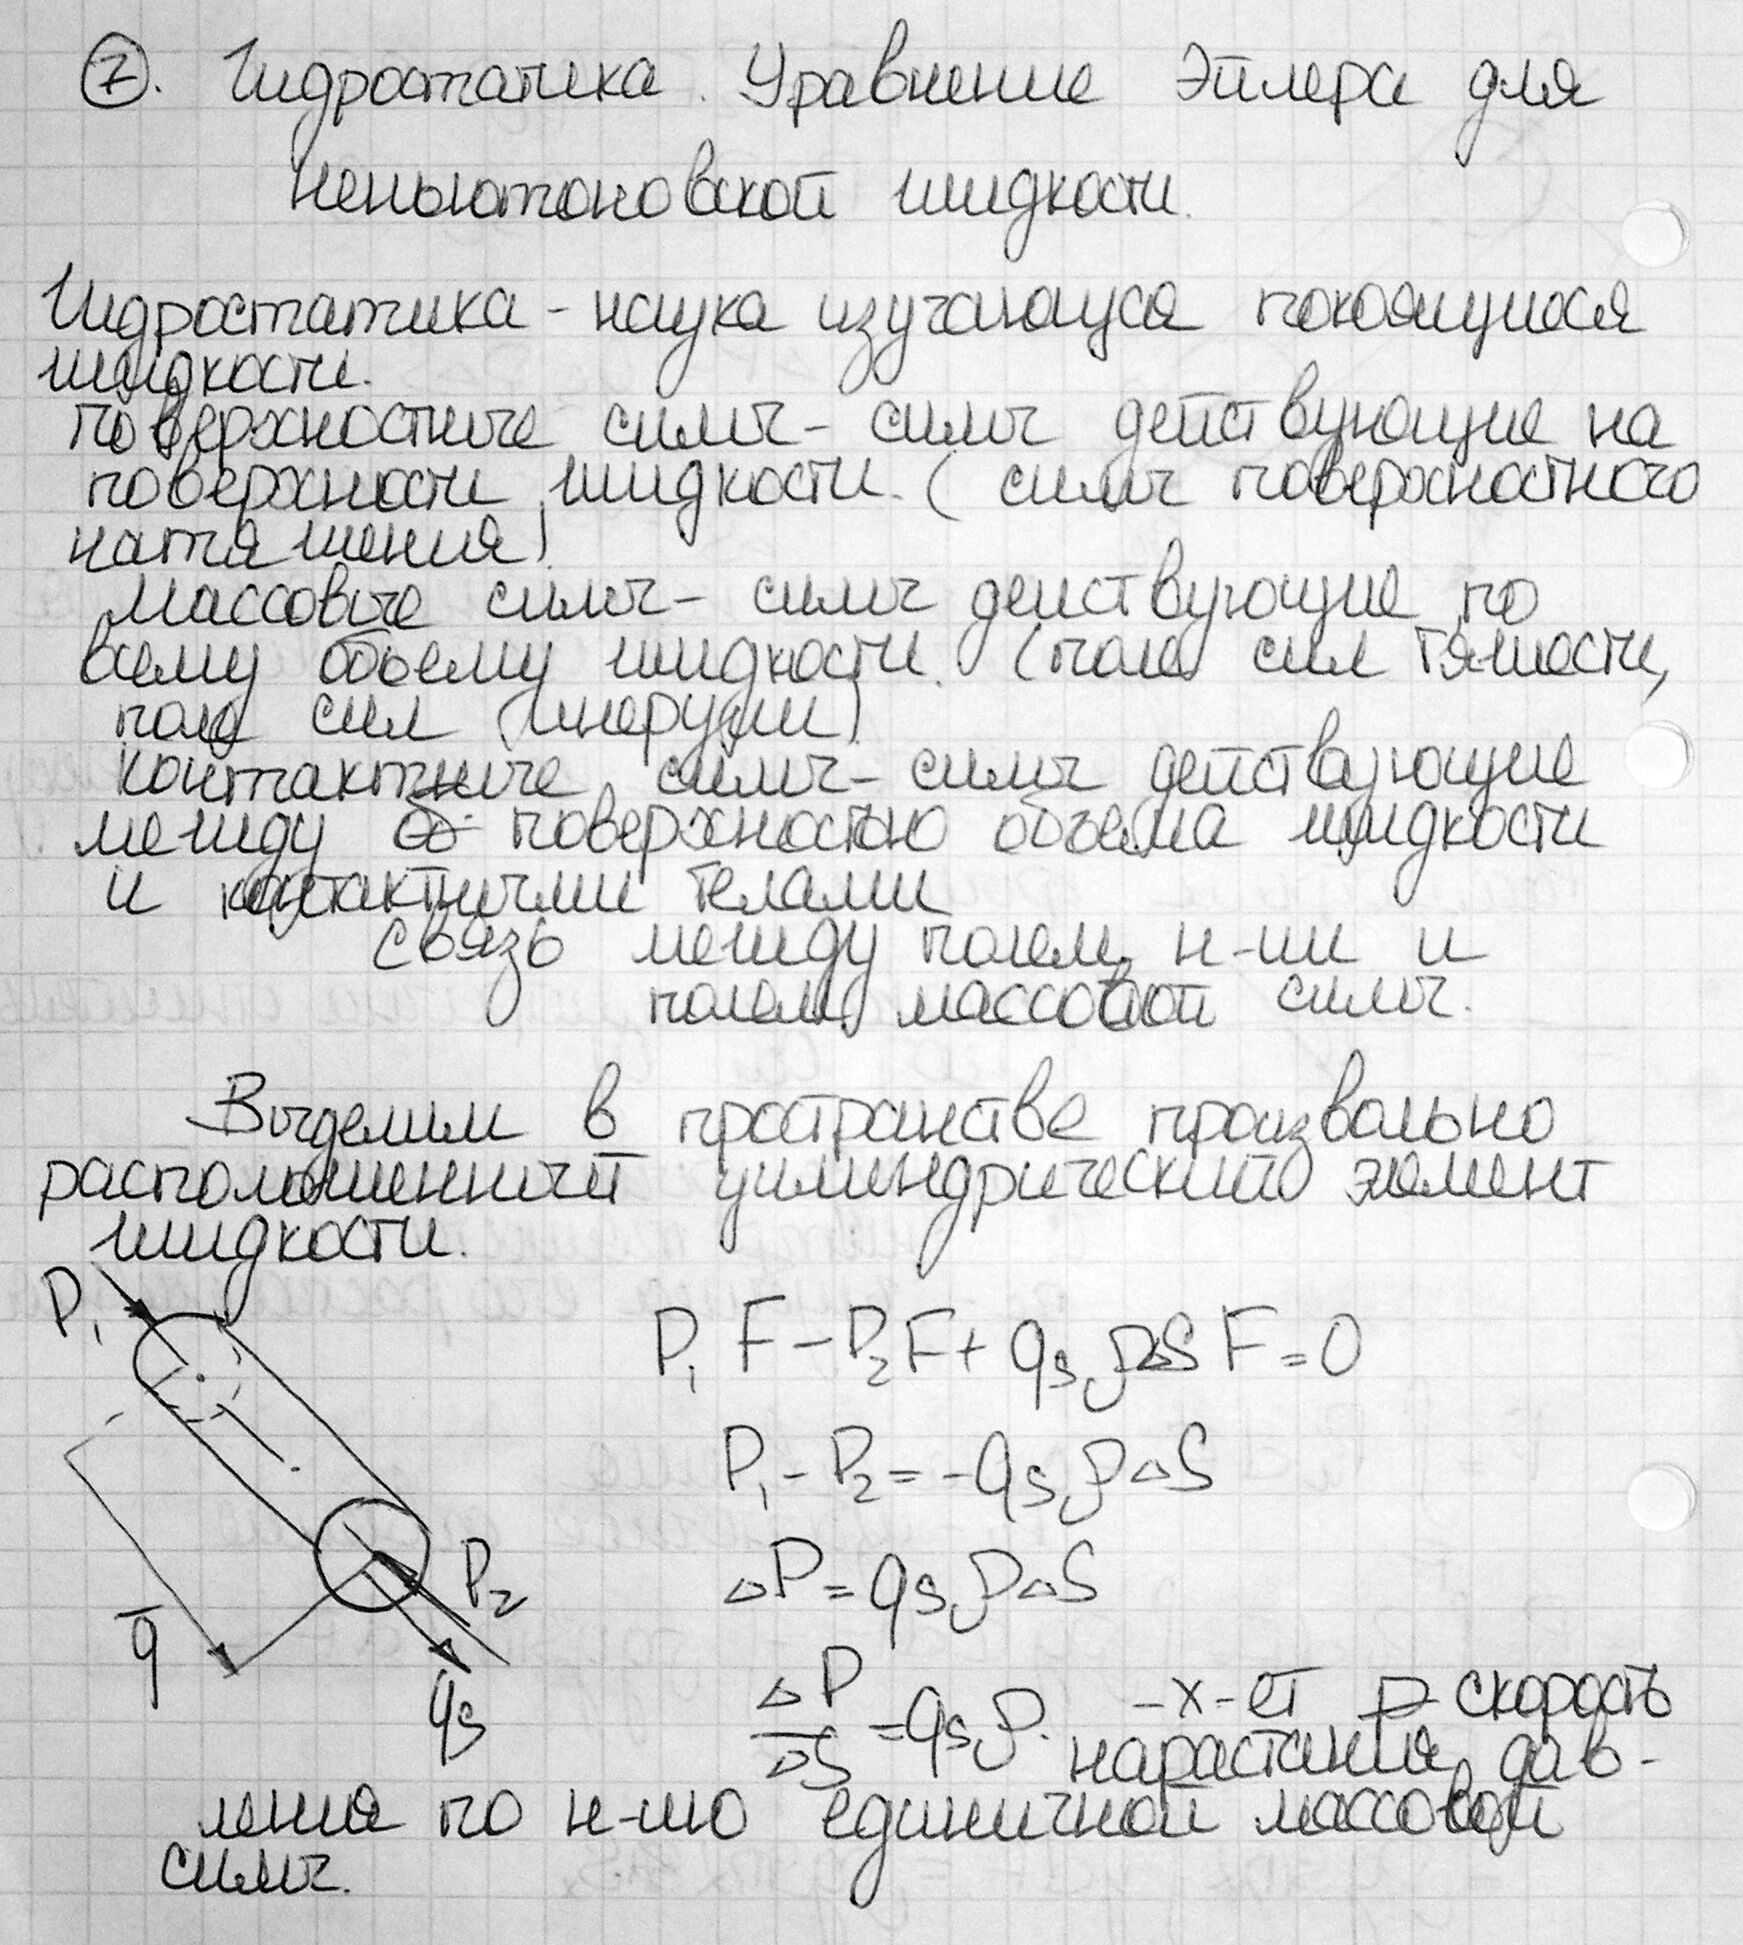 7. Гидростатика. Уравнение Эйлера для
неньютоновской жидкости.
Гидростатика - наука изучающуся покоящуюся
жидкости.
поверхностные силы - силы действующие на
поверхности жидкости. (силы поверхностного
натяжения)
массовые силы - силы действующие по
всему объему жидкости. (поле сил тяжести,
поле сил инерции)
контактные силы - силы действующие
между поверхностью объема жидкости
и контактными телами
связь между полем н-ии и
полем массовой силы.
Выделим в пространстве произвольно
расположенный цилиндрический элемент
жидкости.
P₁
P₁F - P₂F + q_s ρΔS F = 0
P₁ - P₂ = -q_s ρΔS
ΔP = q_s ρΔS
P₂
q̄
q_s
ΔP/ΔS = q_s ρ. - х-ет скорость
нарастания дав-
ления по н-ию единичной массовой
силы.